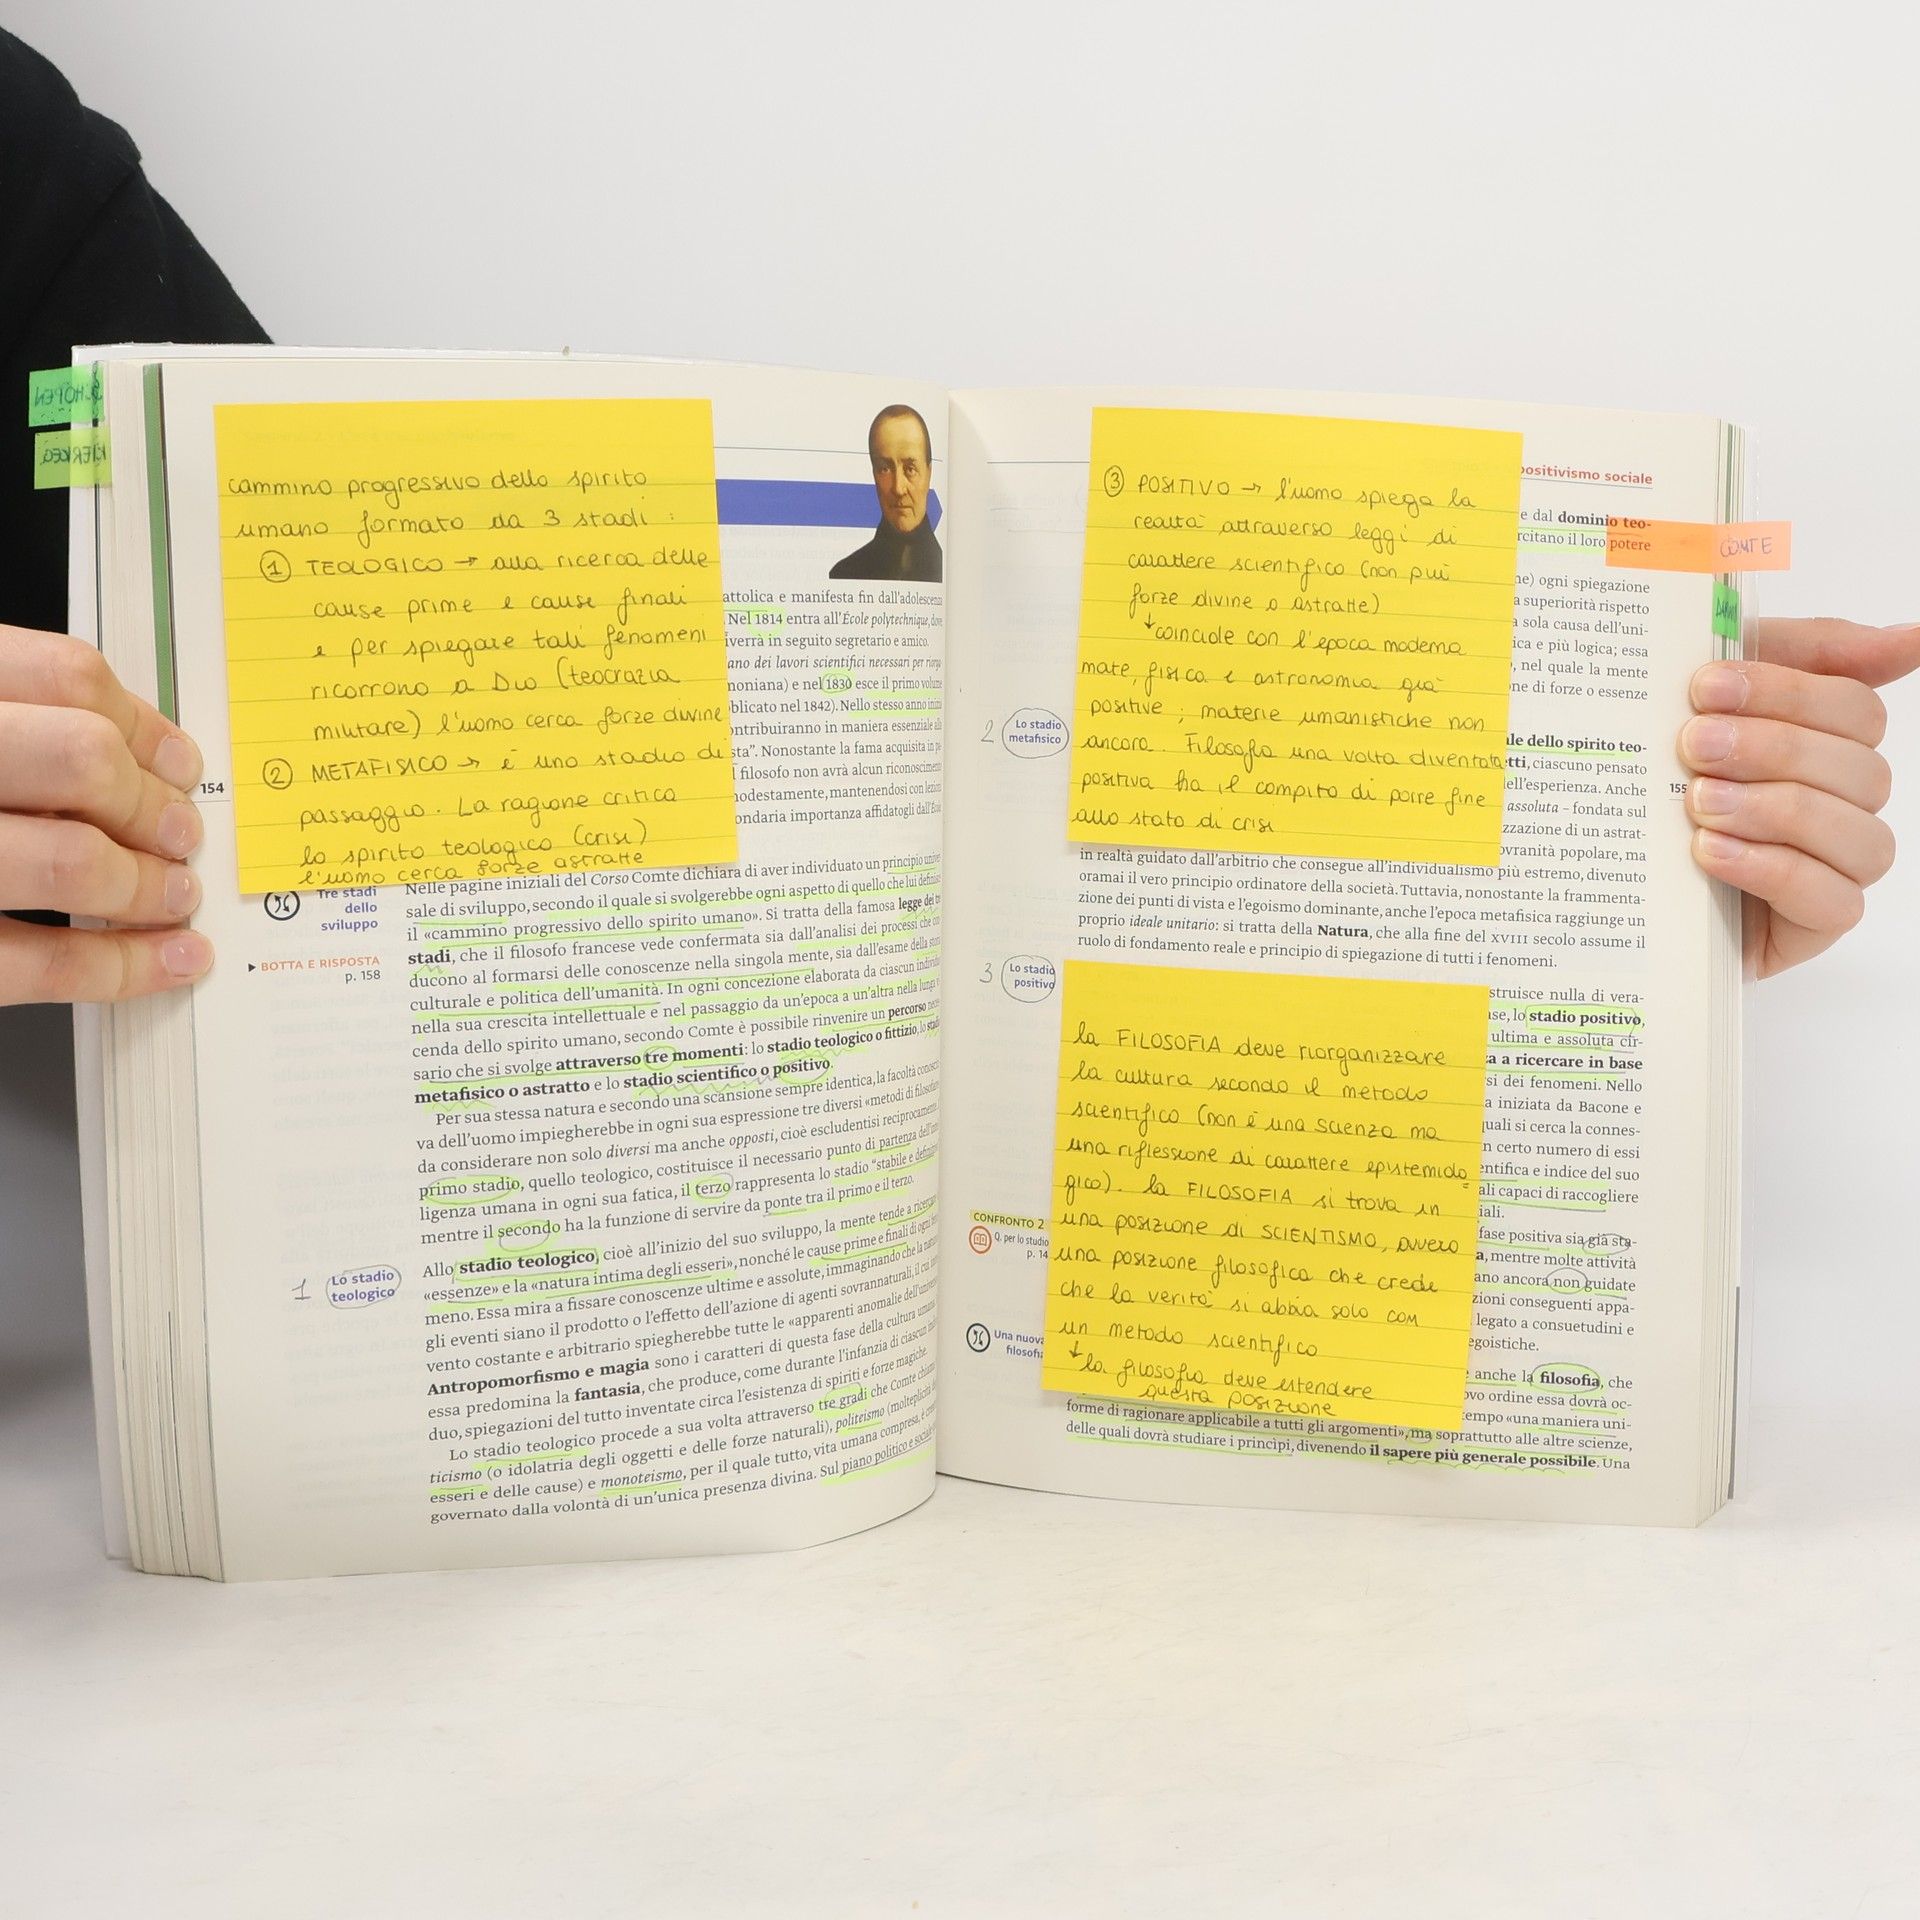 cammino progressivo dello spirito
umano formato da 3 stadi :
① TEOLOGICO → alla ricerca delle
cause prime e cause finali
e per spiegare tali fenomeni
ricorrono a Dio (teocrazia
militare) l'uomo cerca forze divine
② METAFISICO → è uno stadio di
passaggio. La ragione critica
lo spirito teologico (crisi)
l'uomo cerca forze astratte
attolica e manifesta fin dall'adolescenza
Nel 1814 entra all'École polytechnique, dove
iverrà in seguito segretario e amico.
ano dei lavori scientifici necessari per riorga
noniana) e nel 1830 esce il primo volume
blicato nel 1842). Nello stesso anno inizia
ontribuiranno in maniera essenziale alla
sta". Nonostante la fama acquisita in pa
l filosofo non avrà alcun riconoscimento
modestamente, mantenendosi con lezioni
ondaria importanza affidatogli dall'École
154
Tre stadi
dello
sviluppo
▶ BOTTA E RISPOSTA
p. 158
Nelle pagine iniziali del Corso Comte dichiara di aver individuato un principio univer
sale di sviluppo, secondo il quale si svolgerebbe ogni aspetto di quello che lui definisce
il «cammino progressivo dello spirito umano». Si tratta della famosa legge dei tre
stadi, che il filosofo francese vede confermata sia dall'analisi dei processi che con
ducono al formarsi delle conoscenze nella singola mente, sia dall'esame della storia
culturale e politica dell'umanità. In ogni concezione elaborata da ciascun individuo
nella sua crescita intellettuale e nel passaggio da un'epoca a un'altra nella lunga vi
cenda dello spirito umano, secondo Comte è possibile rinvenire un percorso neces
sario che si svolge attraverso tre momenti: lo stadio teologico o fittizio, lo stadio
metafisico o astratto e lo stadio scientifico o positivo.
Per sua stessa natura e secondo una scansione sempre identica, la facoltà conosci
va dell'uomo impiegherebbe in ogni sua espressione tre diversi «metodi di filosofare
da considerare non solo diversi ma anche opposti, cioè escludentisi reciprocamente.
primo stadio, quello teologico, costituisce il necessario punto di partenza dell'in
ligenza umana in ogni sua fatica, il terzo rappresenta lo stadio "stabile e definitivo"
mentre il secondo ha la funzione di servire da ponte tra il primo e il terzo.
1 Lo stadio
teologico
Allo stadio teologico, cioè all'inizio del suo sviluppo, la mente tende a ricercare
«essenze» e la «natura intima degli esseri», nonché le cause prime e finali di ogni feno
meno. Essa mira a fissare conoscenze ultime e assolute, immaginando che la natura
gli eventi siano il prodotto o l'effetto dell'azione di agenti sovrannaturali, il cui inter
vento costante e arbitrario spiegherebbe tutte le «apparenti anomalie dell'universo
Antropomorfismo e magia sono i caratteri di questa fase della cultura umana
essa predomina la fantasia, che produce, come durante l'infanzia di ciascun indivi
duo, spiegazioni del tutto inventate circa l'esistenza di spiriti e forze magiche.
Lo stadio teologico procede a sua volta attraverso tre gradi che Comte chiama
ticismo (o idolatria degli oggetti e delle forze naturali), politeismo (molteplicità di
esseri e delle cause) e monoteismo, per il quale tutto, vita umana compresa, è crea
governato dalla volontà di un'unica presenza divina. Sul piano politico e sociale
③ POSITIVO → l'uomo spiega la
realtà attraverso leggi di
carattere scientifico (non più
forze divine o astratte)
↓ coincide con l'epoca moderna
mate, fisica e astronomia già
positive ; materie umanistiche non
ancora. Filosofia una volta diventata
positiva ha il compito di porre fine
allo stato di crisi
positivismo sociale
e dal dominio teo-
rcitano il loro potere
COMTE
ne) ogni spiegazione
a superiorità rispetto
a sola causa dell'uni-
ica e più logica; essa
, nel quale la mente
ne di forze o essenze
2 Lo stadio
metafisico
le dello spirito teo-
tti, ciascuno pensato
ell'esperienza. Anche
assoluta – fondata sul
zzazione di un astrat-
ovranità popolare, ma
155
in realtà guidato dall'arbitrio che consegue all'individualismo più estremo, divenuto
oramai il vero principio ordinatore della società. Tuttavia, nonostante la frammenta-
zione dei punti di vista e l'egoismo dominante, anche l'epoca metafisica raggiunge un
proprio ideale unitario: si tratta della Natura, che alla fine del XVIII secolo assume il
ruolo di fondamento reale e principio di spiegazione di tutti i fenomeni.
3 Lo stadio
positivo
la FILOSOFIA deve riorganizzare
la cultura secondo il metodo
scientifico (non è una scienza ma
una riflessione di carattere epistemolo
gico). la FILOSOFIA si trova in
una posizione di SCIENTISMO, ovvero
una posizione filosofica che crede
che la verità si abbia solo con
un metodo scientifico
↓ la filosofia deve estendere
questa posizione
struisce nulla di vera-
ase, lo stadio positivo,
ultima e assoluta cir-
za a ricercare in base
si dei fenomeni. Nello
a iniziata da Bacone e
quali si cerca la connes-
n certo numero di essi
entifica e indice del suo
ali capaci di raccogliere
iali.
fase positiva sia già sta-
a, mentre molte attività
ano ancora non guidate
zioni conseguenti appa-
legato a consuetudini e
egoistiche.
CONFRONTO 2
Q. per lo studio
p. 14
Una nuova
filosofia
e anche la filosofia, che
ovo ordine essa dovrà oc-
tempo «una maniera uni-
forme di ragionare applicabile a tutti gli argomenti», ma soprattutto alle altre scienze,
delle quali dovrà studiare i principi, divenendo il sapere più generale possibile. Una